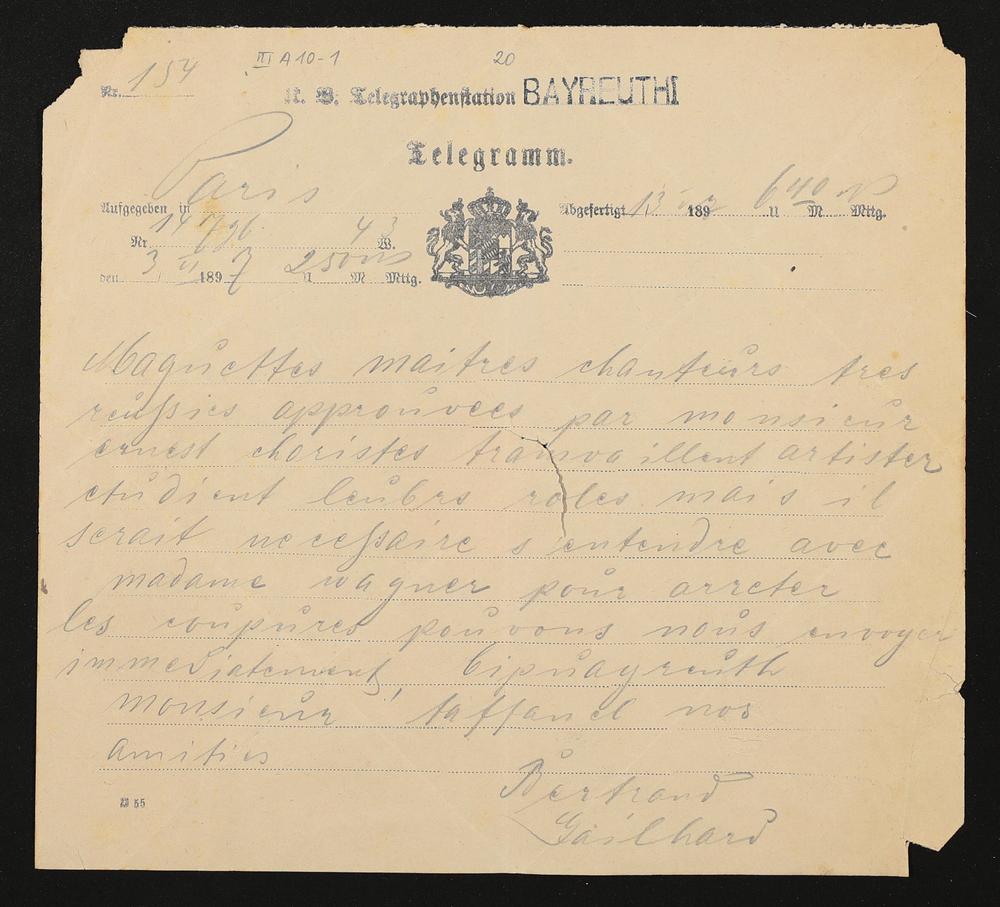 III A 10-1 20
Nr. 154 K. B. Telegraphenstation BAYREUTH I
Telegramm.
Aufgegeben in Paris
Nr. 14726 43 W.
den 3 VI 1897 U 250 M Mttg.
Abgefertigt 13 189 U 640 M Mttg.
Maquettes maitres chanteurs tres
reussies approuvees par monsieur
ernest choristes tranvaillent artister
etudient leubrs roles mais il
serait necessaire s entendre avec
madame wagner pour arreter
les coupures pouvons nous envoyer
immediatement bipuayreuth
monsieur taffanel nos
amities
Bertrand
Gailhard
55